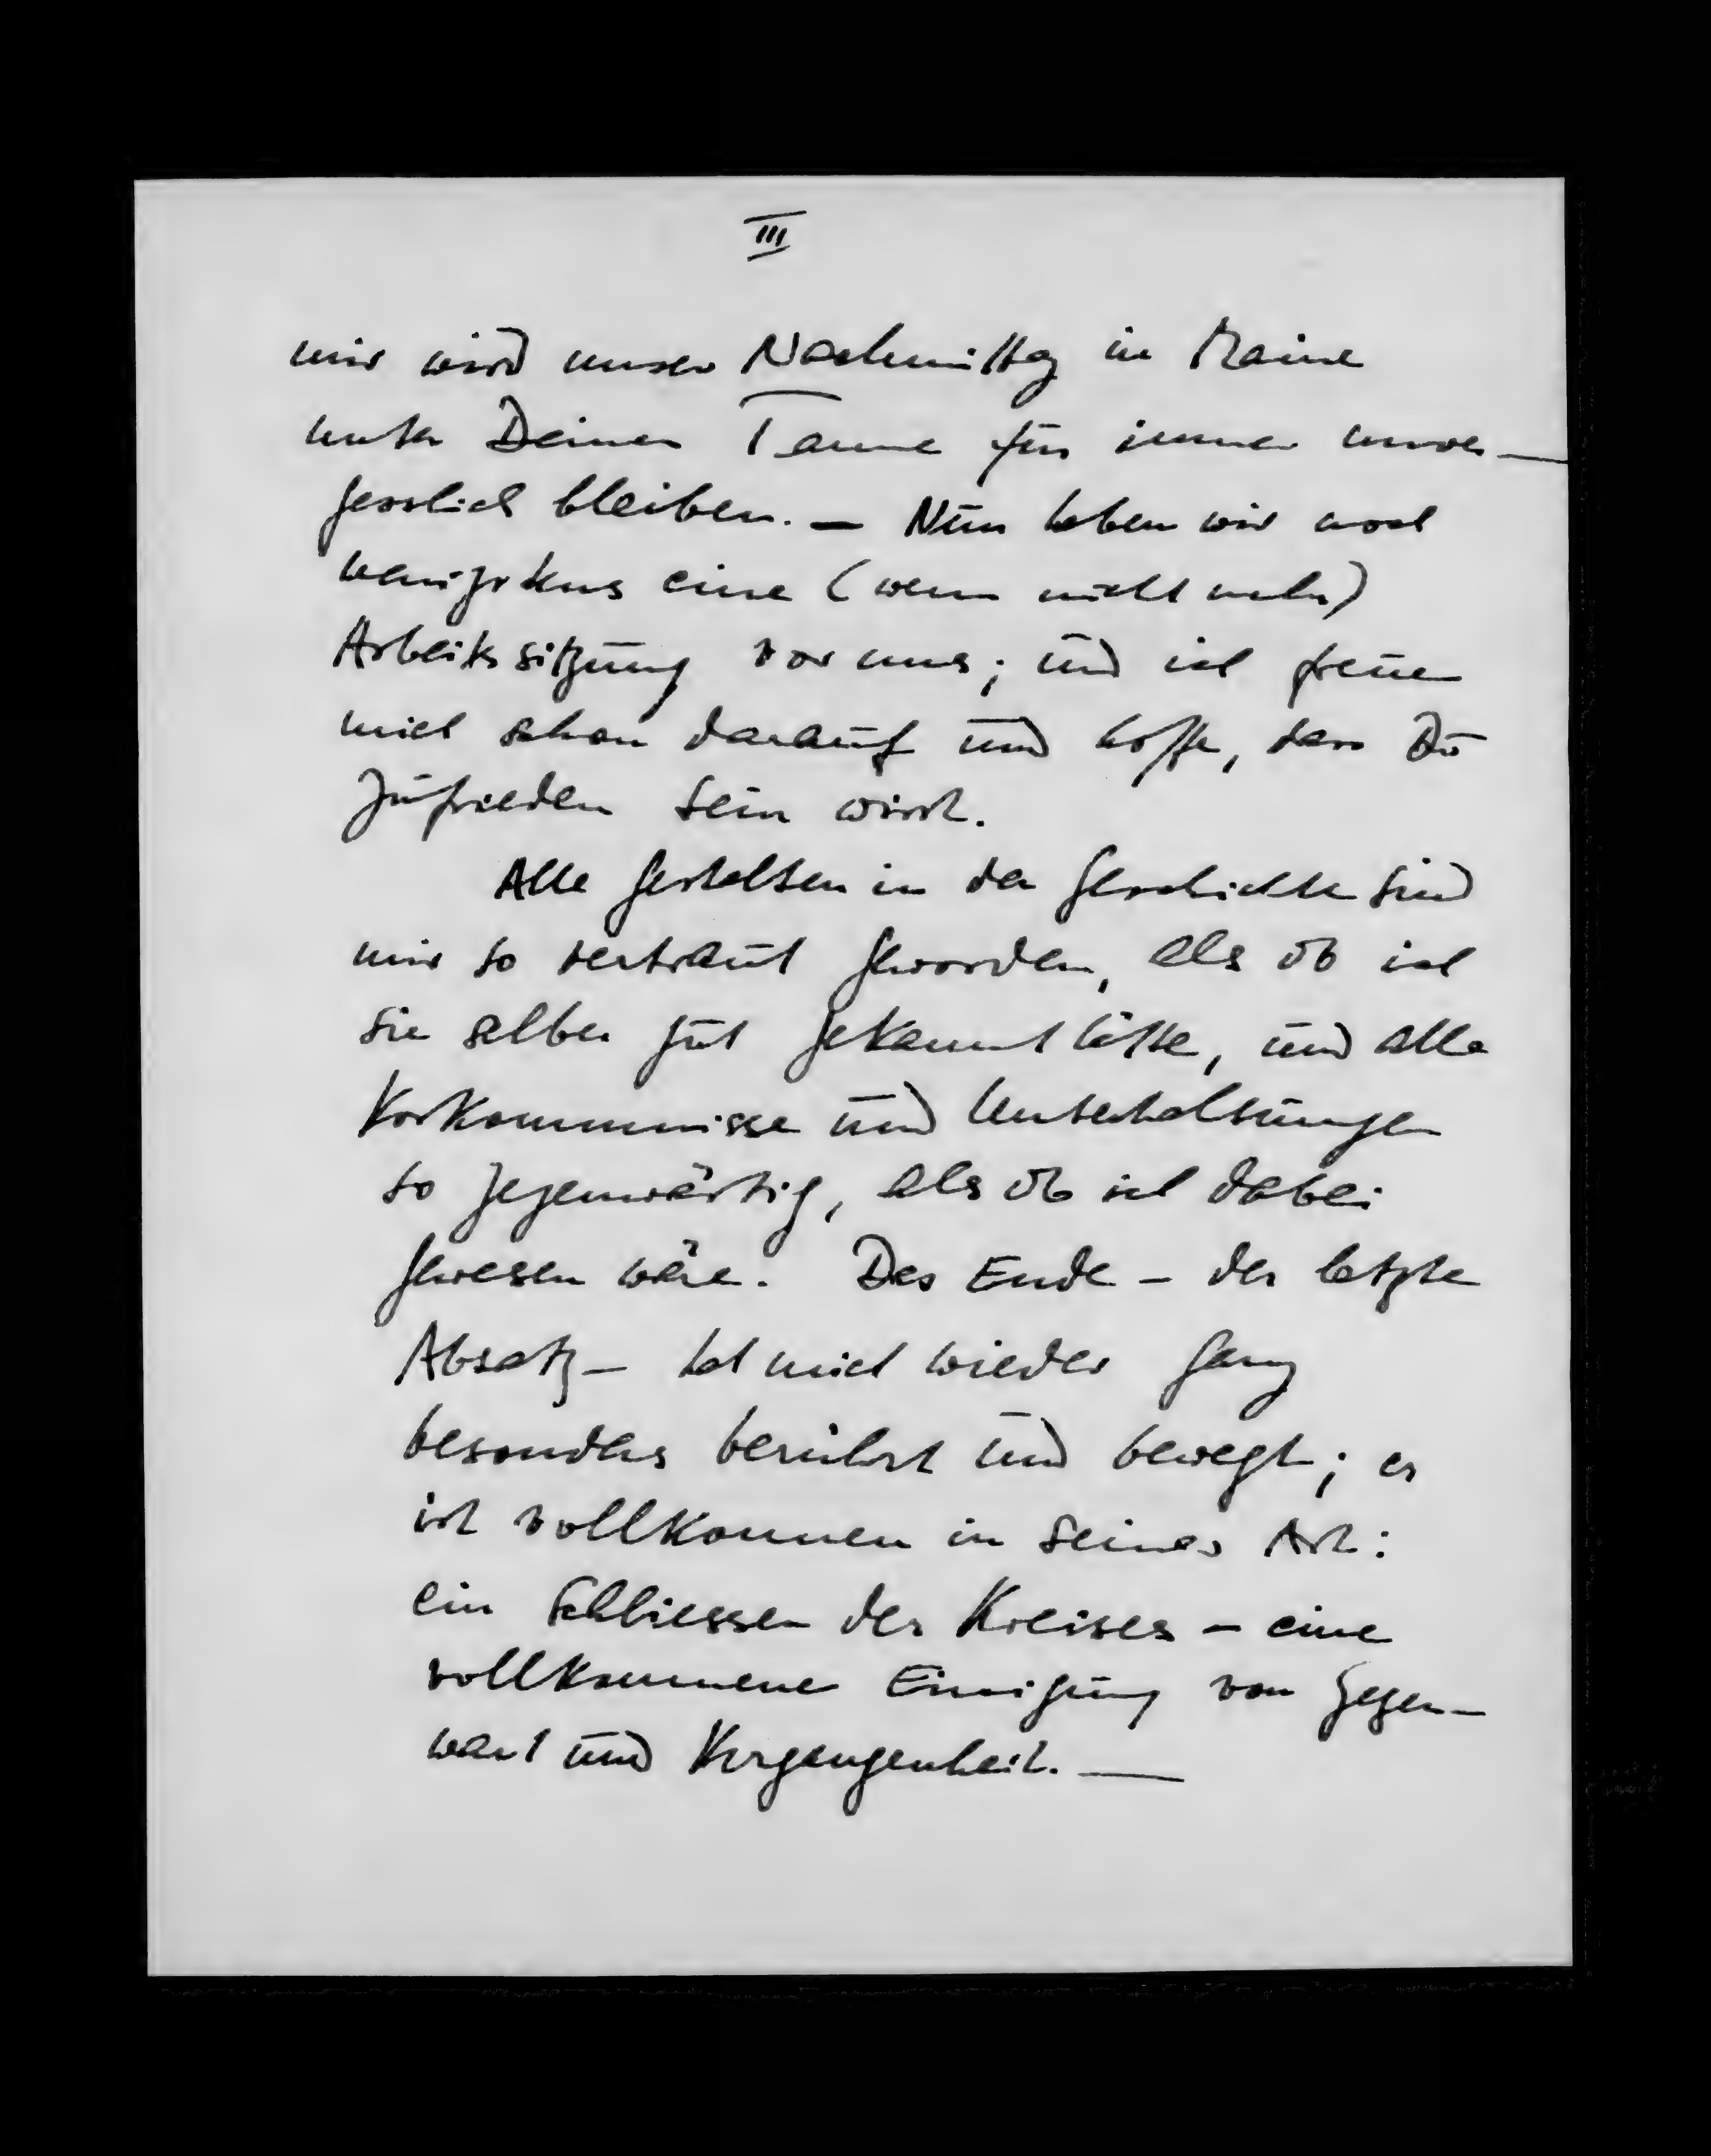 III
mir wird unser Nachmittag in Maine
unter Deiner Tanne für immer unver-
gesslich bleiben. — Nun haben wir noch
wenigstens eine (wenn nicht mehr)
Arbeitssitzung vor uns; und ich freue
mich schon darauf und hoffe, dass Du
zufrieden sein wirst.
Alle Gestalten in der Geschichte sind
mir so vertraut geworden, als ob ich
sie selber gut gekannt hätte, und alle
Vorkommnisse und Unterhaltungen
so gegenwärtig, als ob ich dabei
gewesen wäre. Das Ende – der letzte
Absatz – hat mich wieder ganz
besonders berührt und bewegt; er
ist vollkommen in seiner Art:
ein Schliessen des Kreises – eine
vollkommene Einigung von Gegen-
wart und Vergangenheit. —